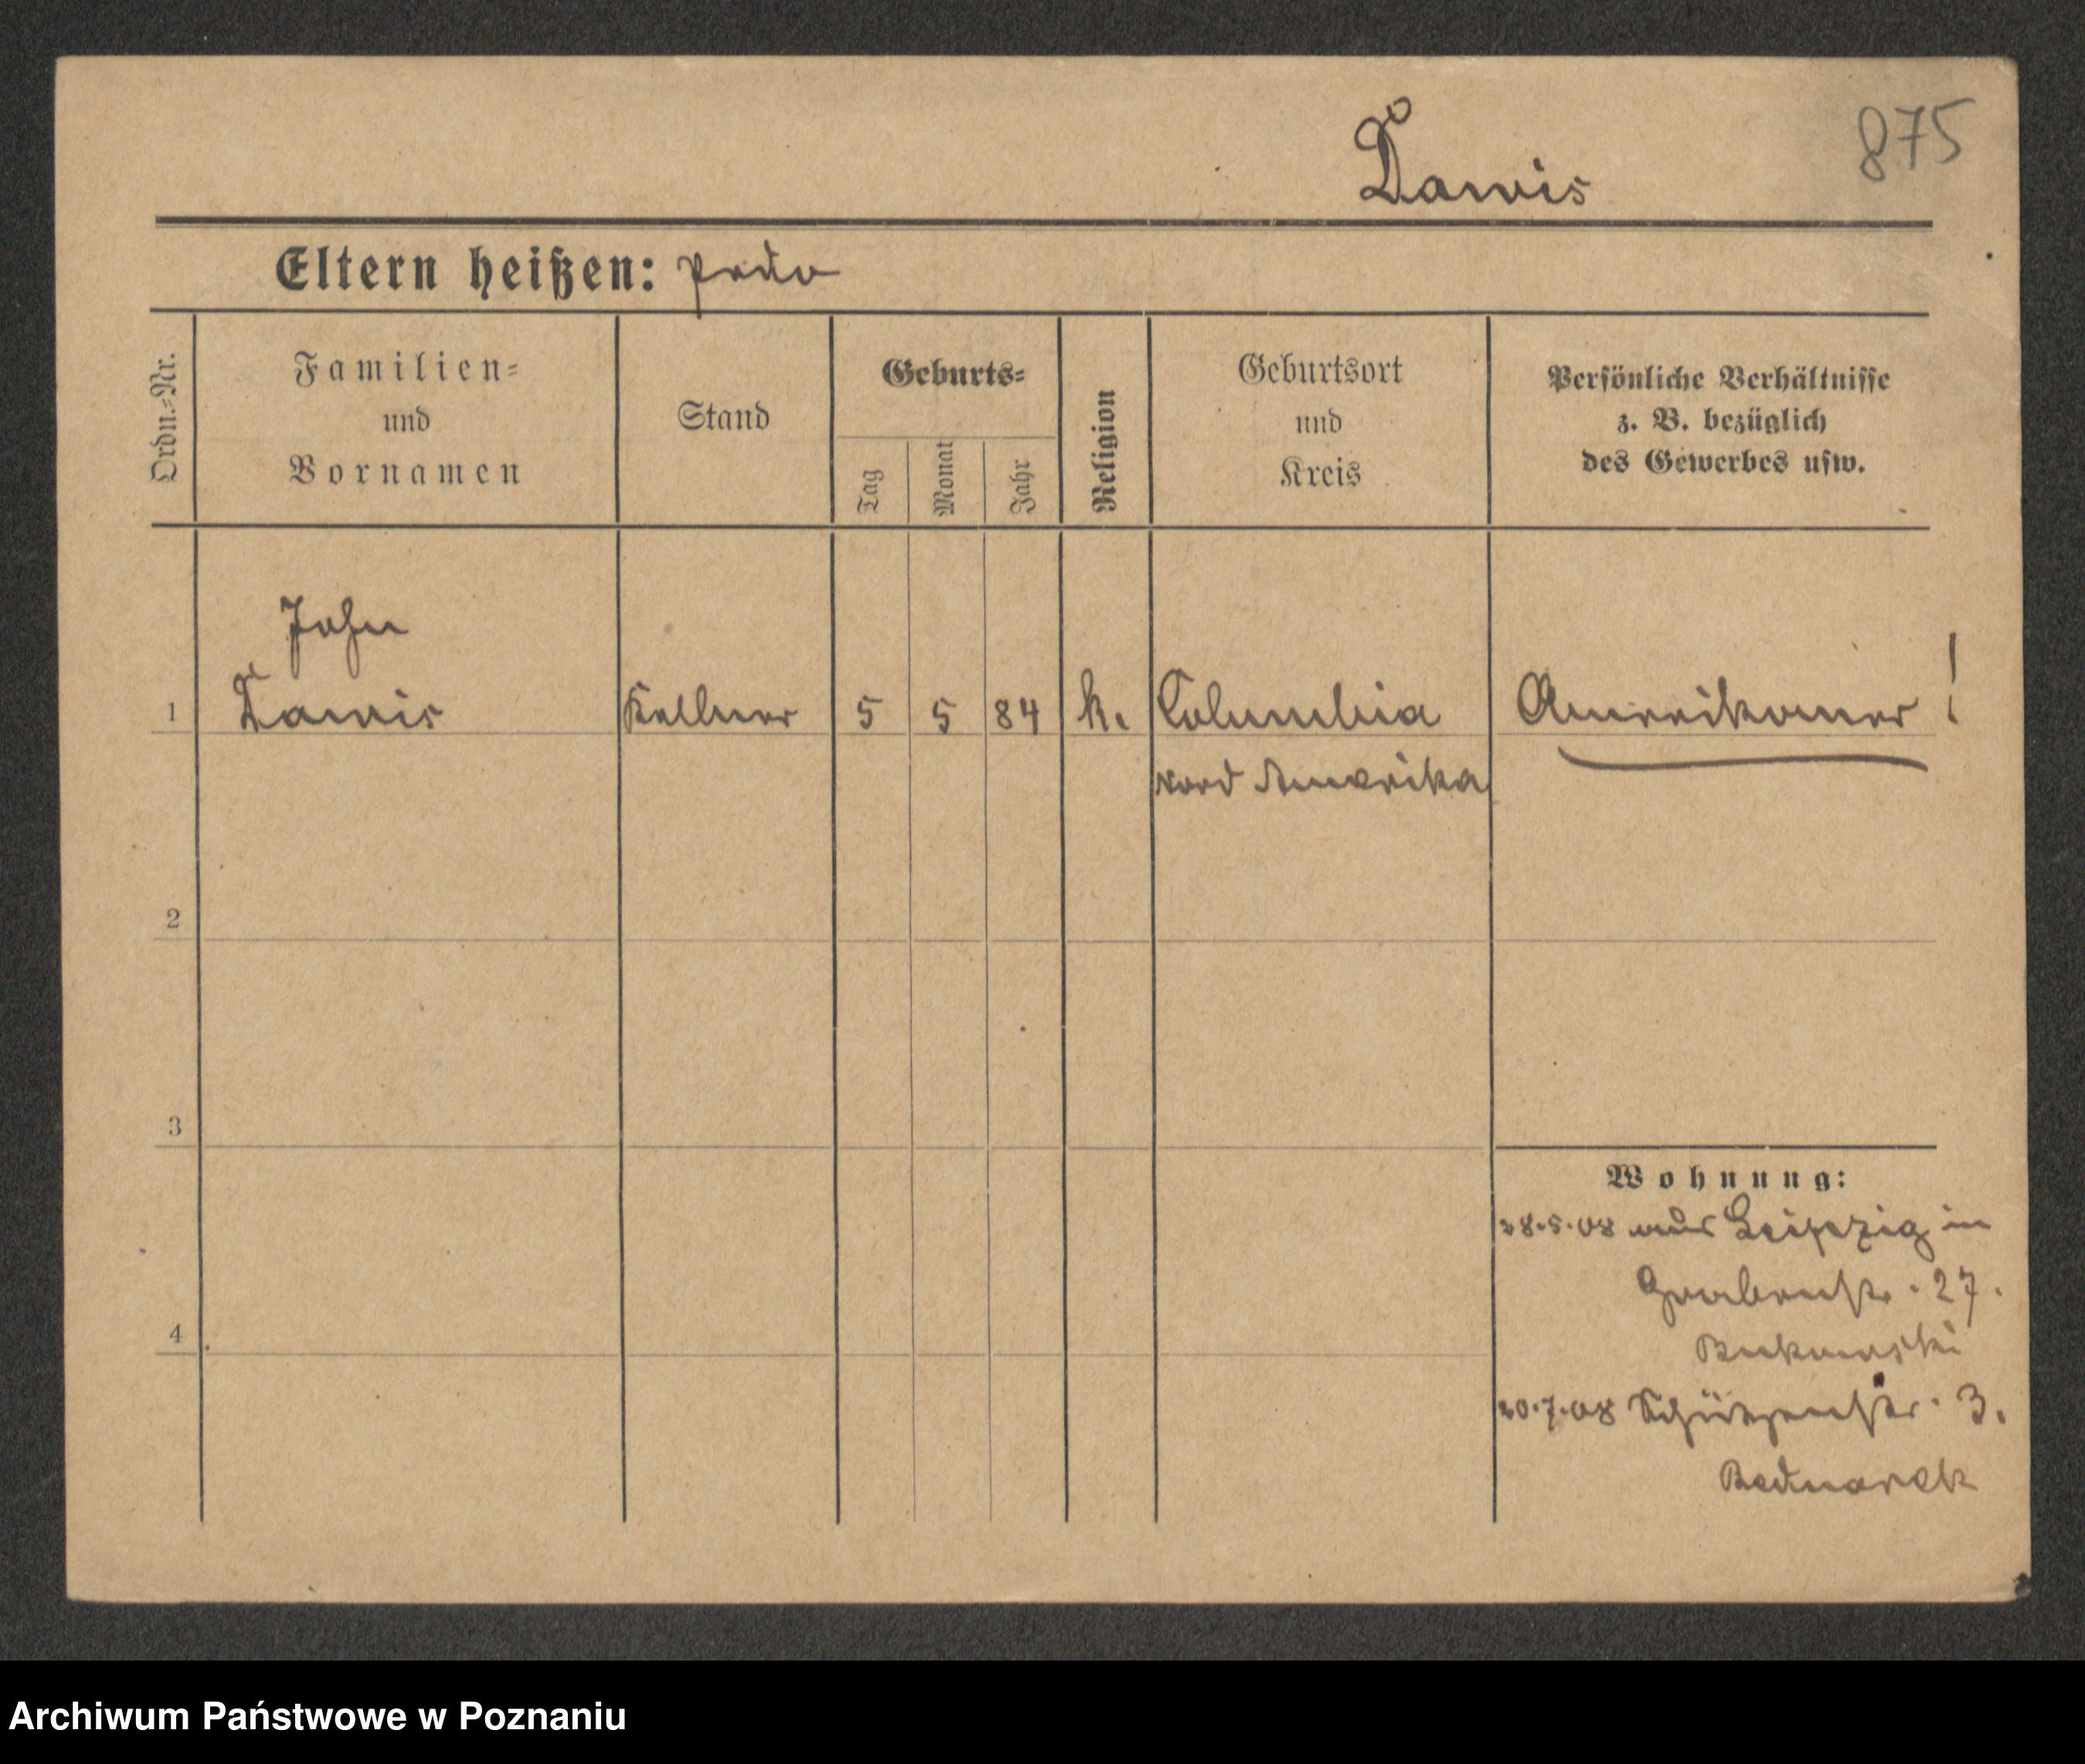 875
Dawis
Eltern heißen:
Ordn.-Nr.
Familien-
und
Vornamen
Stand
Geburts-
Tag
Monat
Jahr
Religion
Geburtsort
und
Kreis
Persönliche Verhältnisse
z. B. bezüglich
des Gewerbes usw.
John
1 Dawis Kellner 5 5 84 k. Columbia Amerikaner !
Nord Amerika
2
3
Wohnung:
28.5.08 aus Leipzig in
Grabenstr. 27.
Bukowski
4
20.7.08 Schützenstr. 3.
Bednarek
Archiwum Państwowe w Poznaniu